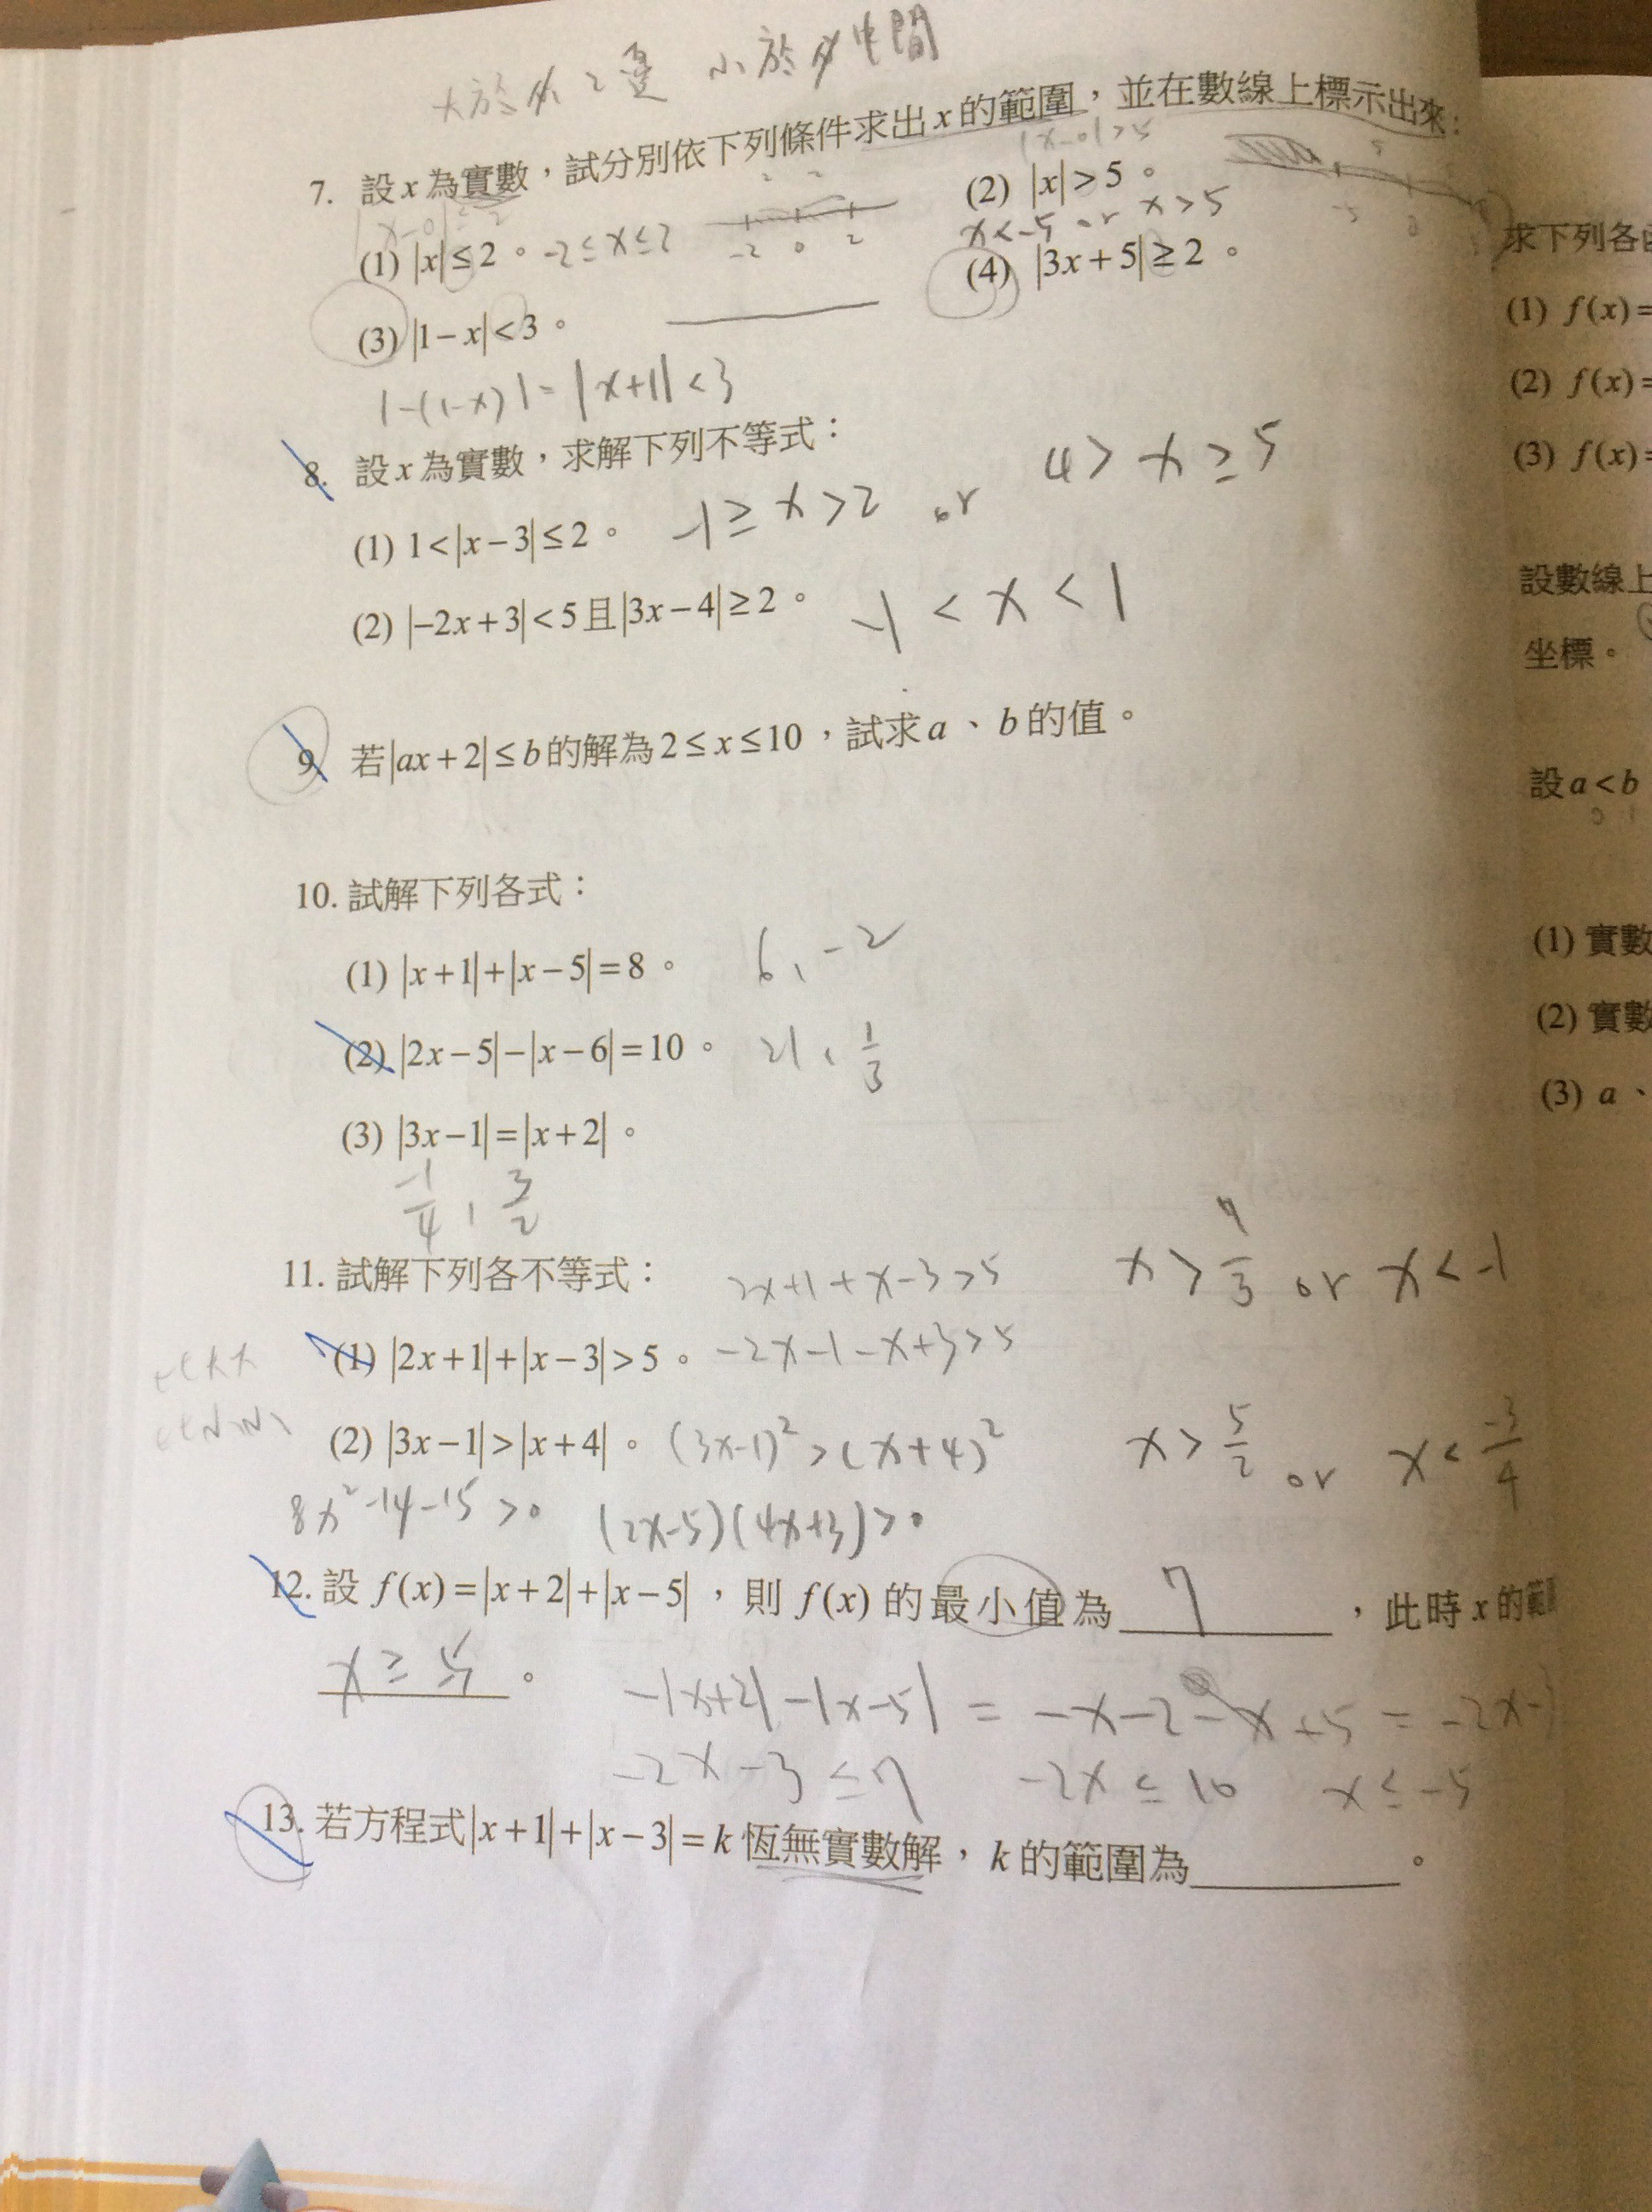 大於 2邊 小於 中間
7. 設x為實數，試分別依下列條件求出x的範圍，並在數線上標示出來：
|x-0|≤2
|x-0|>5
(1) |x|≤2。 -2≤x≤2
-2 0 2
(2) |x|>5。
x<-5 or x>5
(3) |1-x|<3。
(4) |3x+5|≥2。
|-(1-x)|=|x+1|<3
8. 設x為實數，求解下列不等式：
(1) 1<|x-3|≤2。 -1≥x>2 or 4>x≥5
(2) |-2x+3|<5且|3x-4|≥2。 -1<x<1
9. 若|ax+2|≤b的解為2≤x≤10，試求a、b的值。
10. 試解下列各式：
(1) |x+1|+|x-5|=8。 6、-2
(2) |2x-5|-|x-6|=10。 21、1/3
(3) |3x-1|=|x+2|。
-1/4、3/2
11. 試解下列各不等式： 2x+1+x-3>5
x>7/3 or x<-1
(1) |2x+1|+|x-3|>5。 -2x-1-x+3>5
(2) |3x-1|>|x+4|。 (3x-1)²>(x+4)²
x>5/2 or x<-3/4
8x²-14-15>0 (2x-5)(4x+3)>0
12. 設f(x)=|x+2|+|x-5|，則f(x)的最小值為 7 ，此時x的範
x≥5。
-|x+2|-|x-5|=-x-2-x+5=-2x-
-2x-3≤7 -2x≤10 x≤-5
13. 若方程式|x+1|+|x-3|=k恆無實數解，k的範圍為______。
求下列各
(1) f(x)=
(2) f(x)=
(3) f(x)=
設數線上
坐標。
設a<b
(1) 實數
(2) 實數
(3) a、